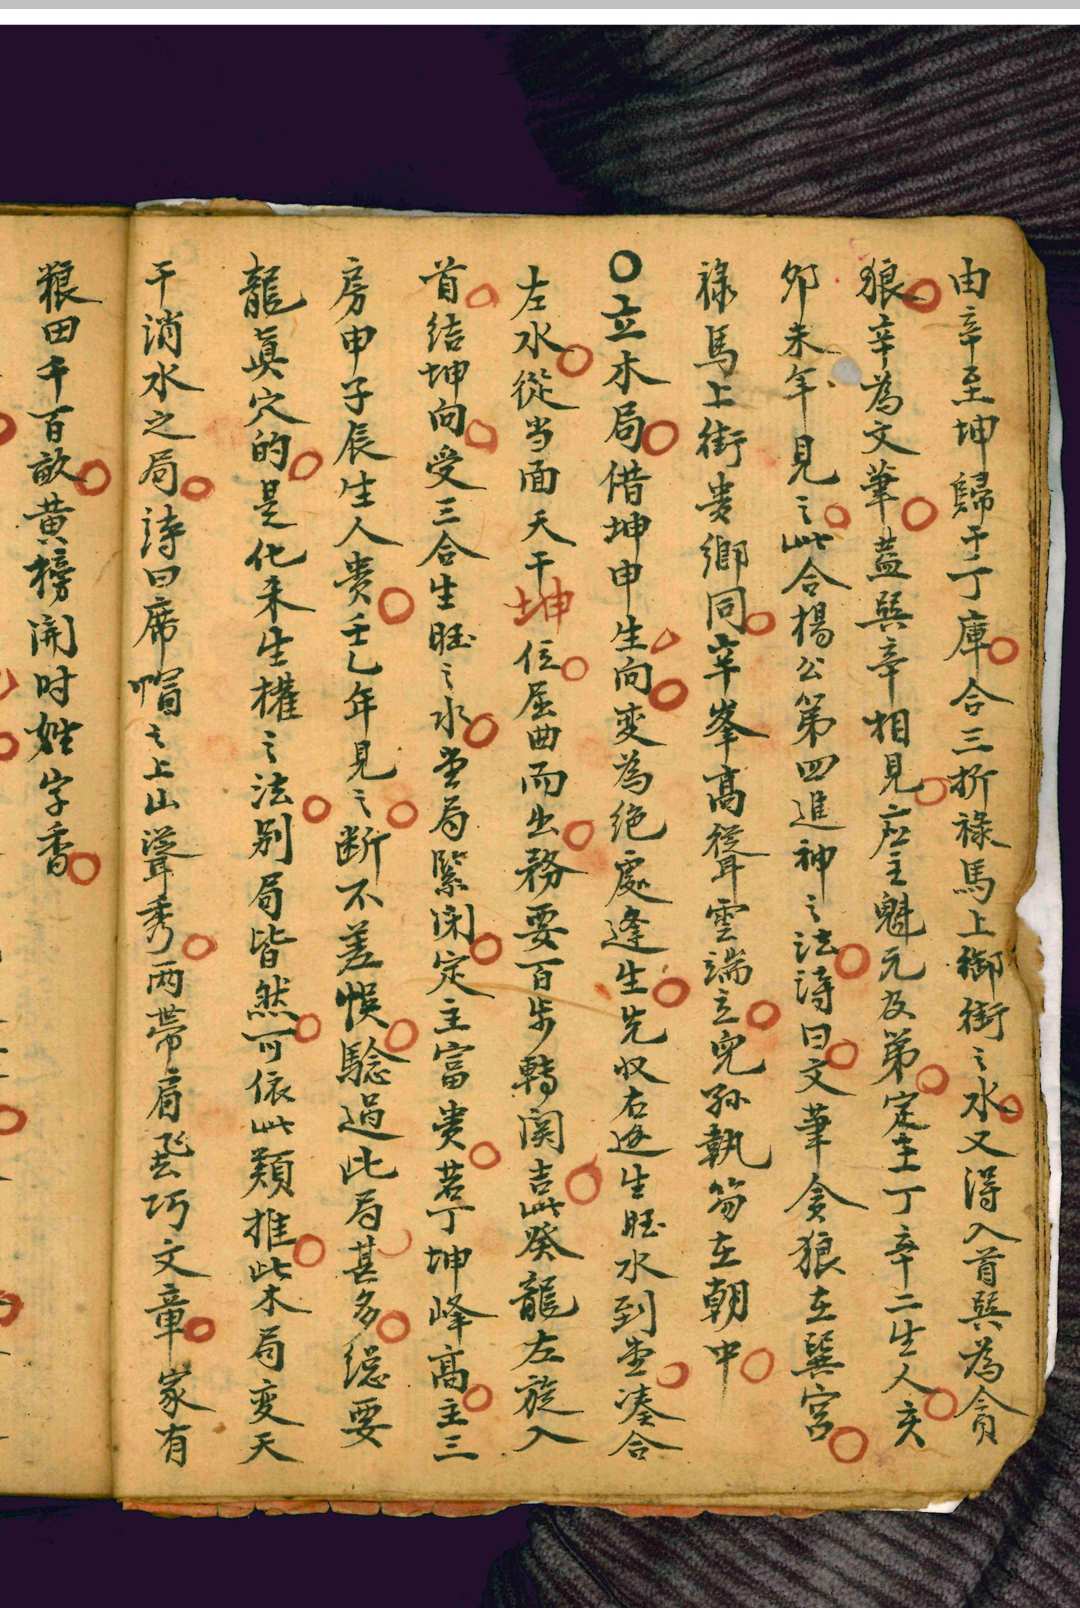 由辛至坤歸于丁庫合三折祿馬上御街之水又得入首巽為貪
狼辛為文筆蓋巽辛相見应主魁元及第定主丁辛二生人亥
卯未年見之此合楊公第四進神之法詩曰文筆貪狼在巽宮
祿馬上街贵鄉同辛峯高聳雲端立兒孫執笏在朝中
〇立木局借坤申生向变為绝處逢生先収右边生旺水到堂凑合
左水從当面天干坤位屈曲而出務要百步轉関吉此癸龍左旋入
首结坤向受三合生旺之水堂局緊関定主富贵若丁坤峰高主三
房申子辰生人贵壬乙年見之断不差悞驗過此局甚多縂要
龍眞穴的是化来生權之法别局皆然可依此類推此木局变天
干消水之局詩曰席帽之上山聳秀两帶肩巧文章家有
粮田千百畝黄榜開时姓字香